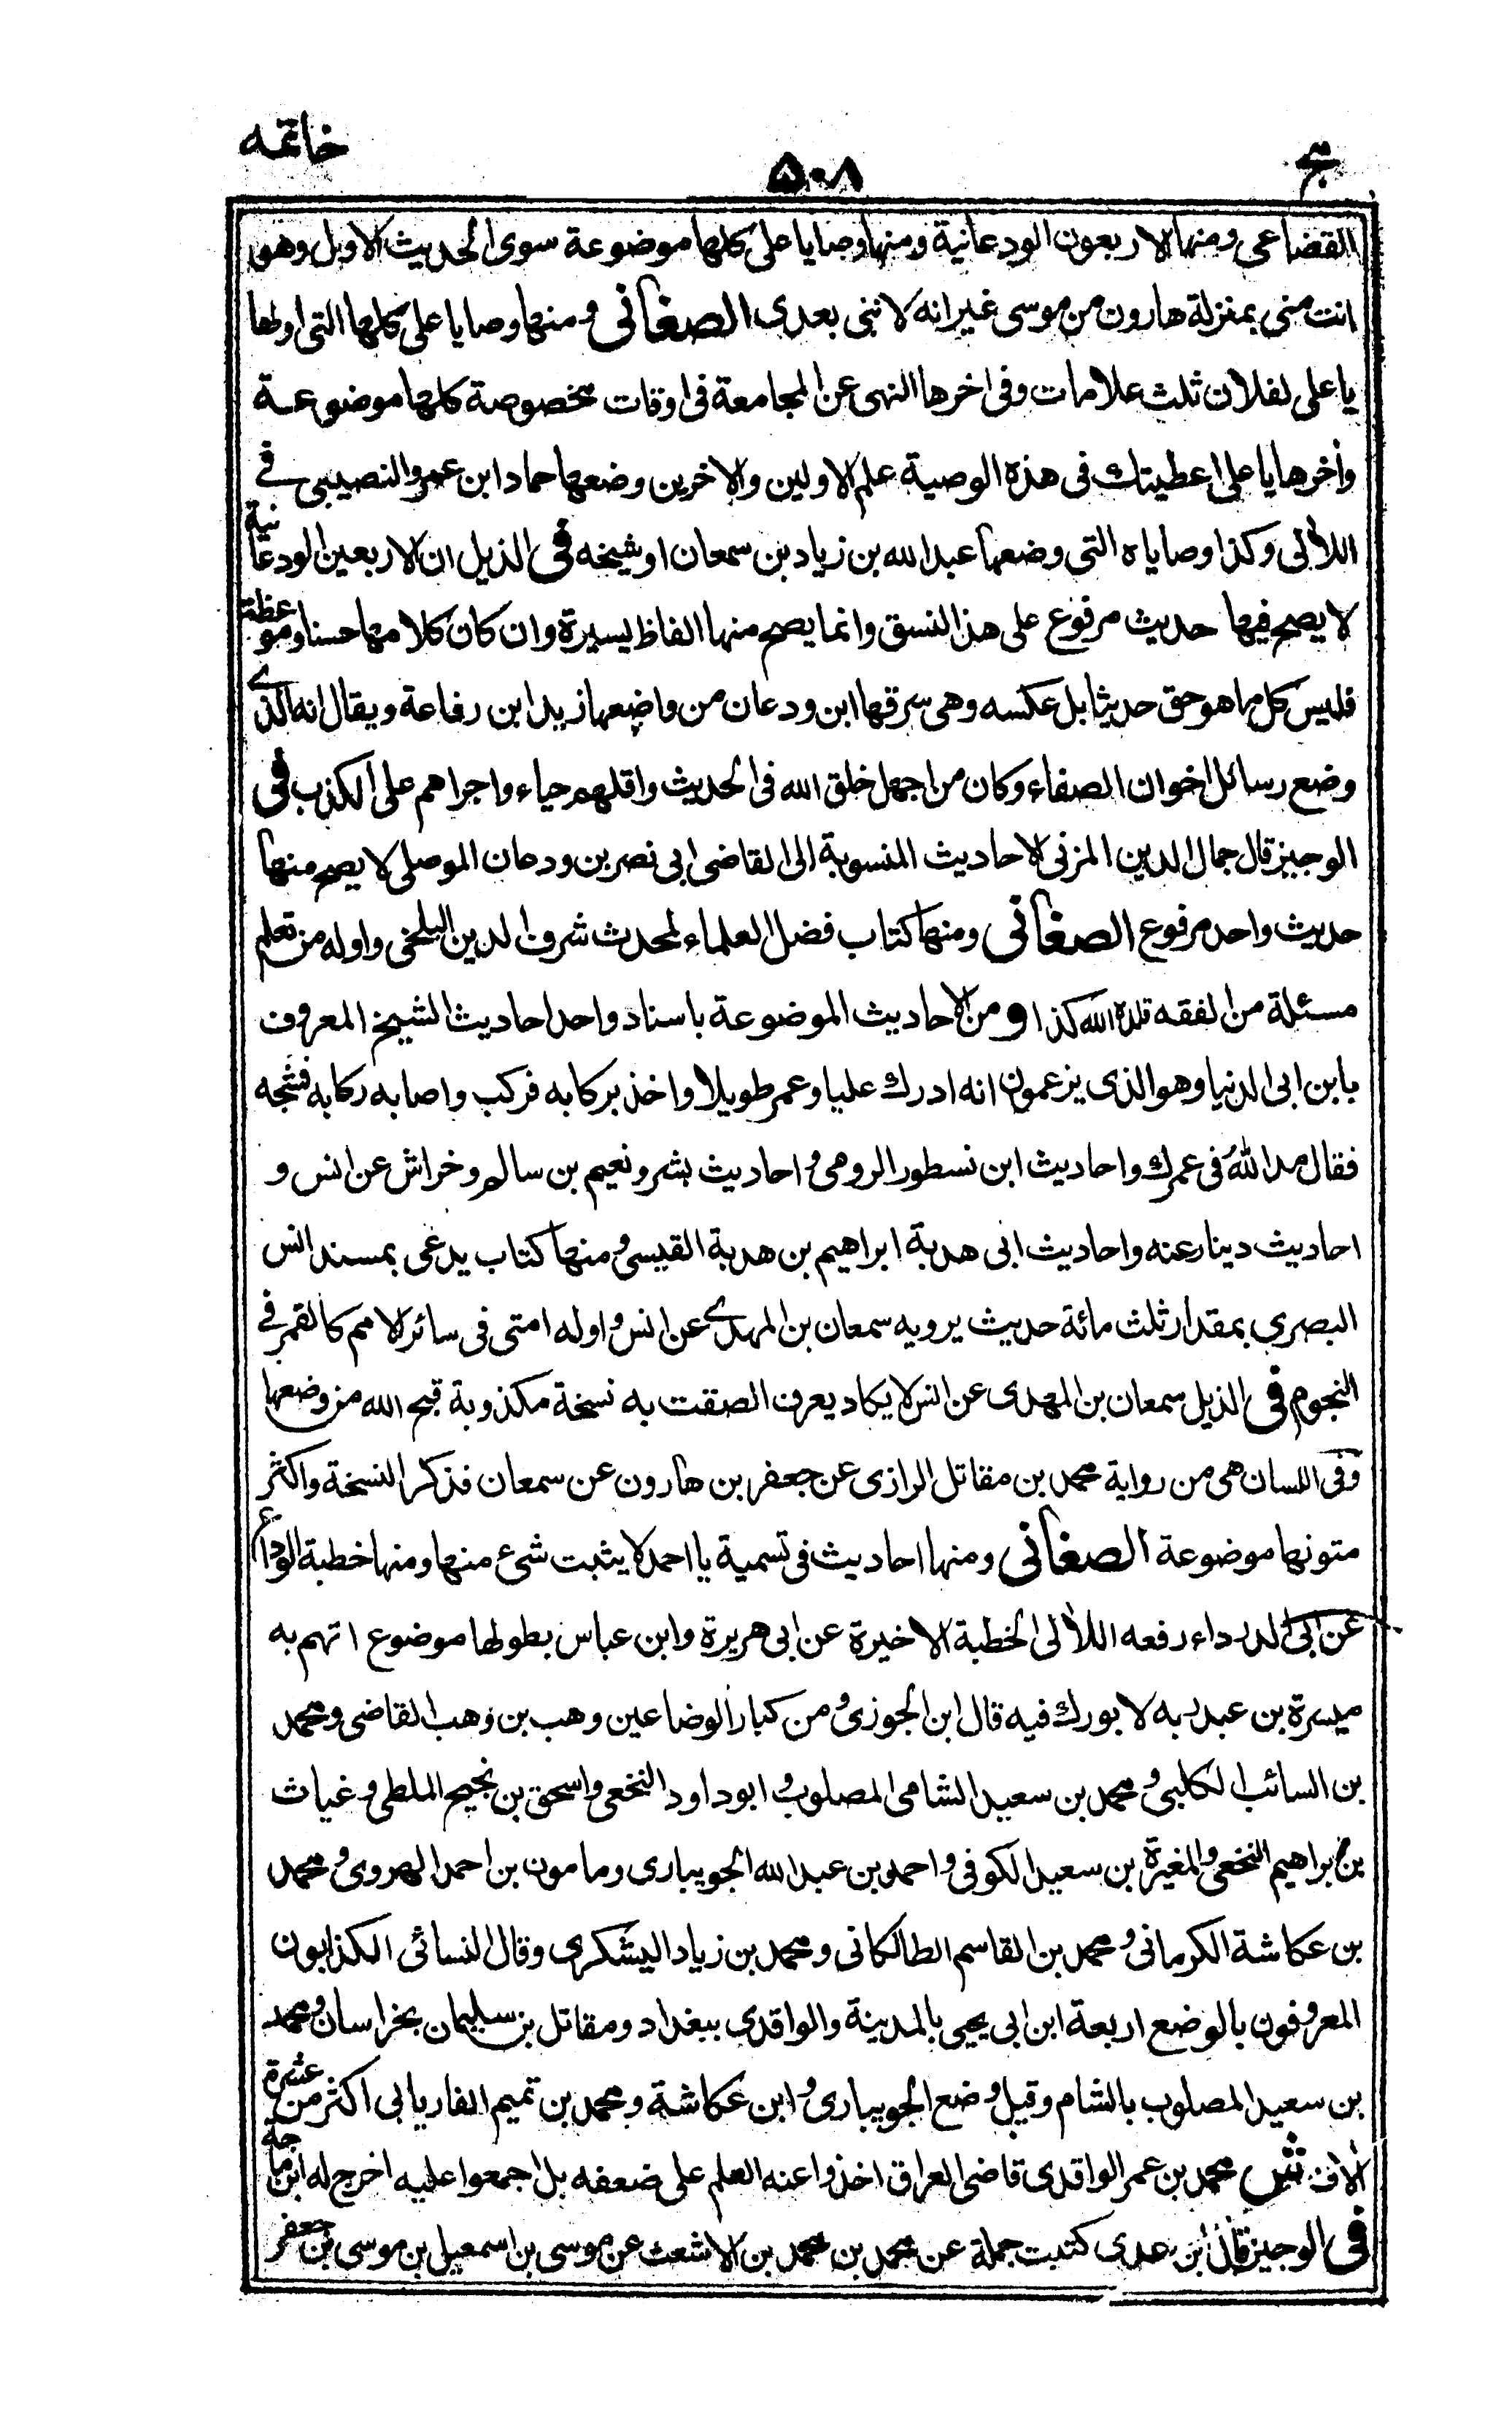 خاتمه
۵۰۸
ج
القضاعى ومنها الاربعون الودعانية ومنها وصايا على كلها موضوعة سوى الحديث الاول وهو
انت منى بمنزلة هارون من موسى غير انه لا نبى بعدى الصغانى ومنها وصايا على كلها التى اولها
يا على لفلان ثلث علامات وفى اخرها النهى عن المجامعة فى اوقات مخصوصة كلها موضوعة
وأخرها يا على اعطيتك فى هذه الوصية علم الاولين والاخرين وضعها حماد ابن عمرو النصيبى فى
اللألى وكذا وصاياه التى وضعها عبد الله بن زياد بن سمعان او شيخه فى الذيل ان الاربعين الودعانية
لا يصح فيها حديث مرفوع على هذا النسق وانما يصح منها الفاظ يسيرة وان كان كلامها حسنا وموعظة
فليس كل ما هو حق حديثا بل عكسه وهى سرقها ابن ودعان من واضعها زيد ابن رفاعة ويقال انه الذى
وضع رسائل اخوان الصفاء وكان من اجهل خلق الله فى الحديث واقلهم حياء واجراهم على الكذب فى
الوجيز قال جمال الدين المزنى الاحاديث المنسوبة الى القاضى ابى نصر بن ودعان الموصلى لا يصح منها
حديث واحد مرفوع الصغانى ومنها كتاب فضل العلماء لمحدث شرف الدين البلخى واوله من تعلم
مسئلة من الفقه قلده الله كذا و من الاحاديث الموضوعة باسناد واحد احاديث الشيخ المعروف
بابن ابى الدنيا وهو الذى يزعمون انه ادرك عليا وعمر طويلا واخذ بركابه فركب واصابه ركابه فشجه
فقال مد الله فى عمرك واحاديث ابن نسطور الرومى و احاديث بشر ونعيم بن سالم وخراش عن انس و
احاديث دينار عنه واحاديث ابى هدبة ابراهيم بن هدبة القيسى و منها كتاب يدعى بمسند انس
البصرى بمقدار ثلث مائة حديث يرويه سمعان بن المهدى عن انس و اوله امتى فى سائر الامم كالقمر فى
النجوم فى الذيل سمعان بن المهدى عن انس لا يكاد يعرف الصقت به نسخة مكذوبة قبح الله من وضعها
وفى اللسان هى من رواية محمد بن مقاتل الرازى عن جعفر بن هارون عن سمعان فذكر النسخة واكثر
متونها موضوعة الصغانى ومنها احاديث فى تسمية يا احمد لا يثبت شىء منها ومنها خطبة الوداع
عن ابى الدرداء رفعه اللألى الخطبة الاخيرة عن ابى هريرة وابن عباس بطولها موضوع اتهم به
ميسرة بن عبد ربه لا بورك فيه قال ابن الجوزى و من كبار الوضاعين وهب بن وهب القاضى ومحمد
بن السائب الكلبى و محمد بن سعيد الشامى المصلوب و ابو داود النخعى و اسحق بن نجيح الملطى و غياث
بن ابراهيم النخعى و المغيرة بن سعيد الكوفى و احمد بن عبد الله الجويبارى ومامون بن احمد الهروى و محمد
بن عكاشة الكرمانى و محمد بن القاسم الطالكانى ومحمد بن زياد اليشكرى وقال النسائى الكذابون
المعروفون بالوضع اربعة ابن ابى يحيى بالمدينة والواقدى ببغداد ومقاتل بن سليمان بخراسان و محمد
بن سعيد المصلوب بالشام وقيل وضع الجويبارى و ابن عكاشة ومحمد بن تميم الفاريابى اكثر من عشرة
الاف ش محمد بن عمر الواقدى قاضى العراق اخذوا عنه العلم على ضعفه بل اجمعوا عليه اخرج له ابن ماجة
فى الوجيز قال ابن عدى كتبت جملة عن محمد بن محمد بن الاشعث عن موسى بن اسمعيل بن موسى بن جعفر